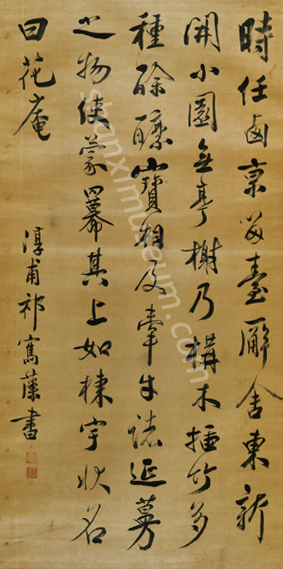 時任鹵稟留臺廨舍東新
開小園無亭榭乃構木插竹多
種酴醾寶相及牽牛諸延蔓
之物使蒙羃其上如棟宇狀名
曰花庵
淳甫祁寯藻書
shanximuseum.com